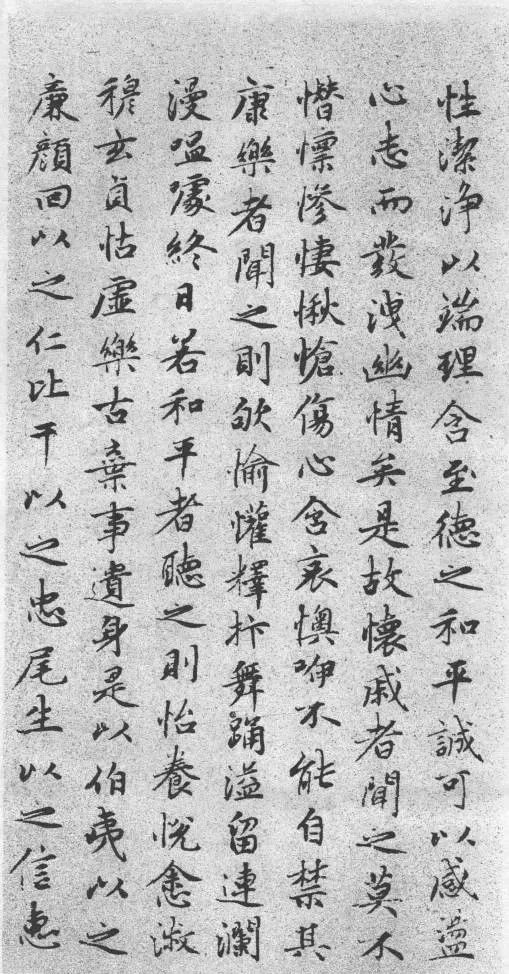 性潔淨以端理含至德之和平誠可以感盪
心志而發洩幽情矣是故懷戚者聞之莫不
憯懍慘悽愀愴傷心含哀懊咿不能自禁其
康樂者聞之則欨愉懽釋抃舞踊溢留連瀾
漫嗢噱終日若和平者聽之則怡養悅悆淑
穆玄貞恬虛樂古棄事遺身是以伯夷以之
廉顏回以之仁比干以之忠尾生以之信惠